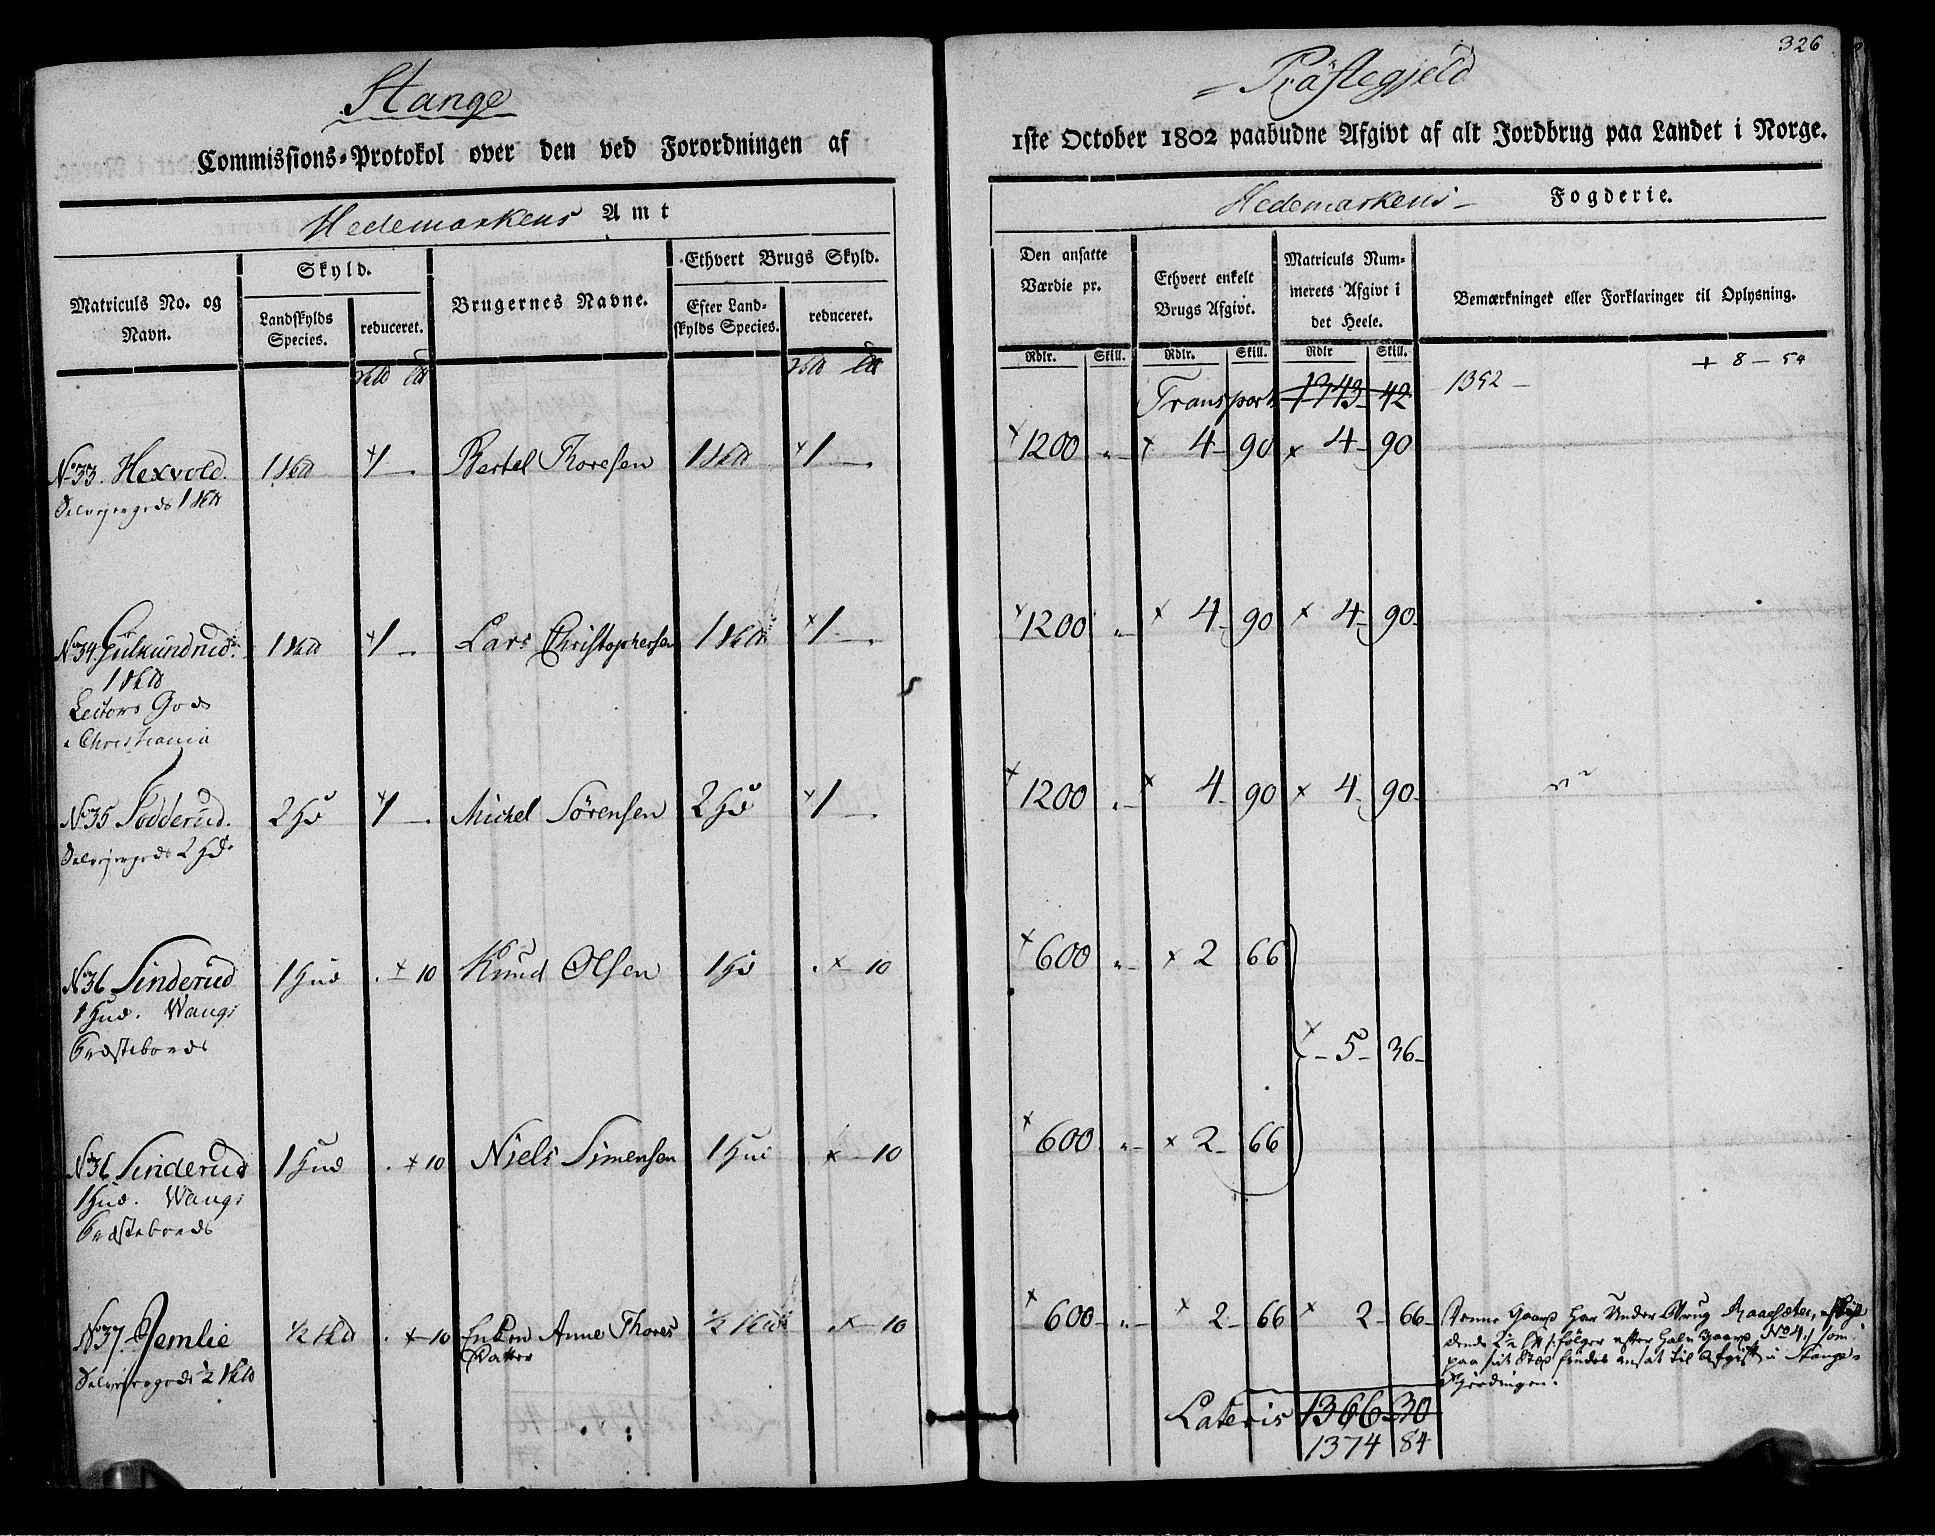 326
Stange
Præstegjeld
Commissions-Protokol over den ved Forordningen af
1ste October 1802 paabudne Afgivt af alt Jordbrug paa Landet i Norge.
Hedemarkens Amt
Hedemarkens Fogderie.
Matriculs No. og Navn.
Skyld.
Landskylds Species.
reduceret.
Brugernes Navne.
Ethvert Brugs Skyld.
Efter Landskylds Species.
reduceret.
Den ansatte Værdie pr.
Ethvert enkelt Brugs Afgivt.
Matriculs Nummerets Afgivt i det Heele.
Bemærkninger eller Forklaringer til Oplysning.
Rdlr. Skill. Rdlr. Skill. Rdlr Skill.
Transport 1343 42 1352 - + 8 - 54
No 33. Hexvold. 1 Skd 1 - Bertel Thoresen 1 Skd 1 - 1200 „ 4 90 4 90
Selveiergods 1 Skd
No 34. Gulkundrud. 1 Skd 1 - Lars Christophersen 1 Skd 1 - 1200 „ 4 90 4 90
1 Skd
Lectors Gods
i Christiania
No 35 Sødderud. 2 Hd 1 - Michel Sörensen 2 Hd 1 - 1200 „ 4 90 4 90
Selveiergods 2 Hd
No 36 Sinderud 1 Hud - 10 Knud Olsen 1 Hd - 10 600 „ 2 66
1 Hud. Wangs
Præstebords
5 36
No 36 Sinderud 1 Hud - 10 Niels Simensen 1 Hud - 10 600 „ 2 66
1 Hud. Wangs
Præstebords
No 37. Jemlie ½ Skd - 10 Enken Anne Thores Datter ½ Skd - 10 600 „ 2 66 2 66
Selveiergods ½ Skd
Denne Gaard har Under Brug Aaasæter,
No 4,
som
paa sit Sted findes ansat til Afgift i Stange
Fjerdingen.
Lateris 1366 30
1374 84